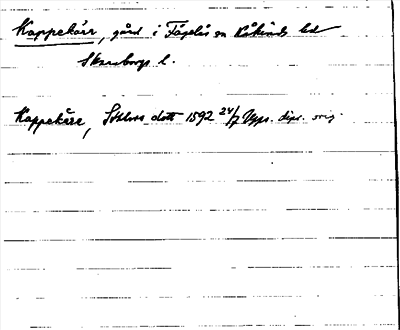 Kappekärr, gård i Fågelås sn Kåkinds hd
Skaraborgs l.
Kappekärr, dott 1592 24/7 Upps. dipl. orig.